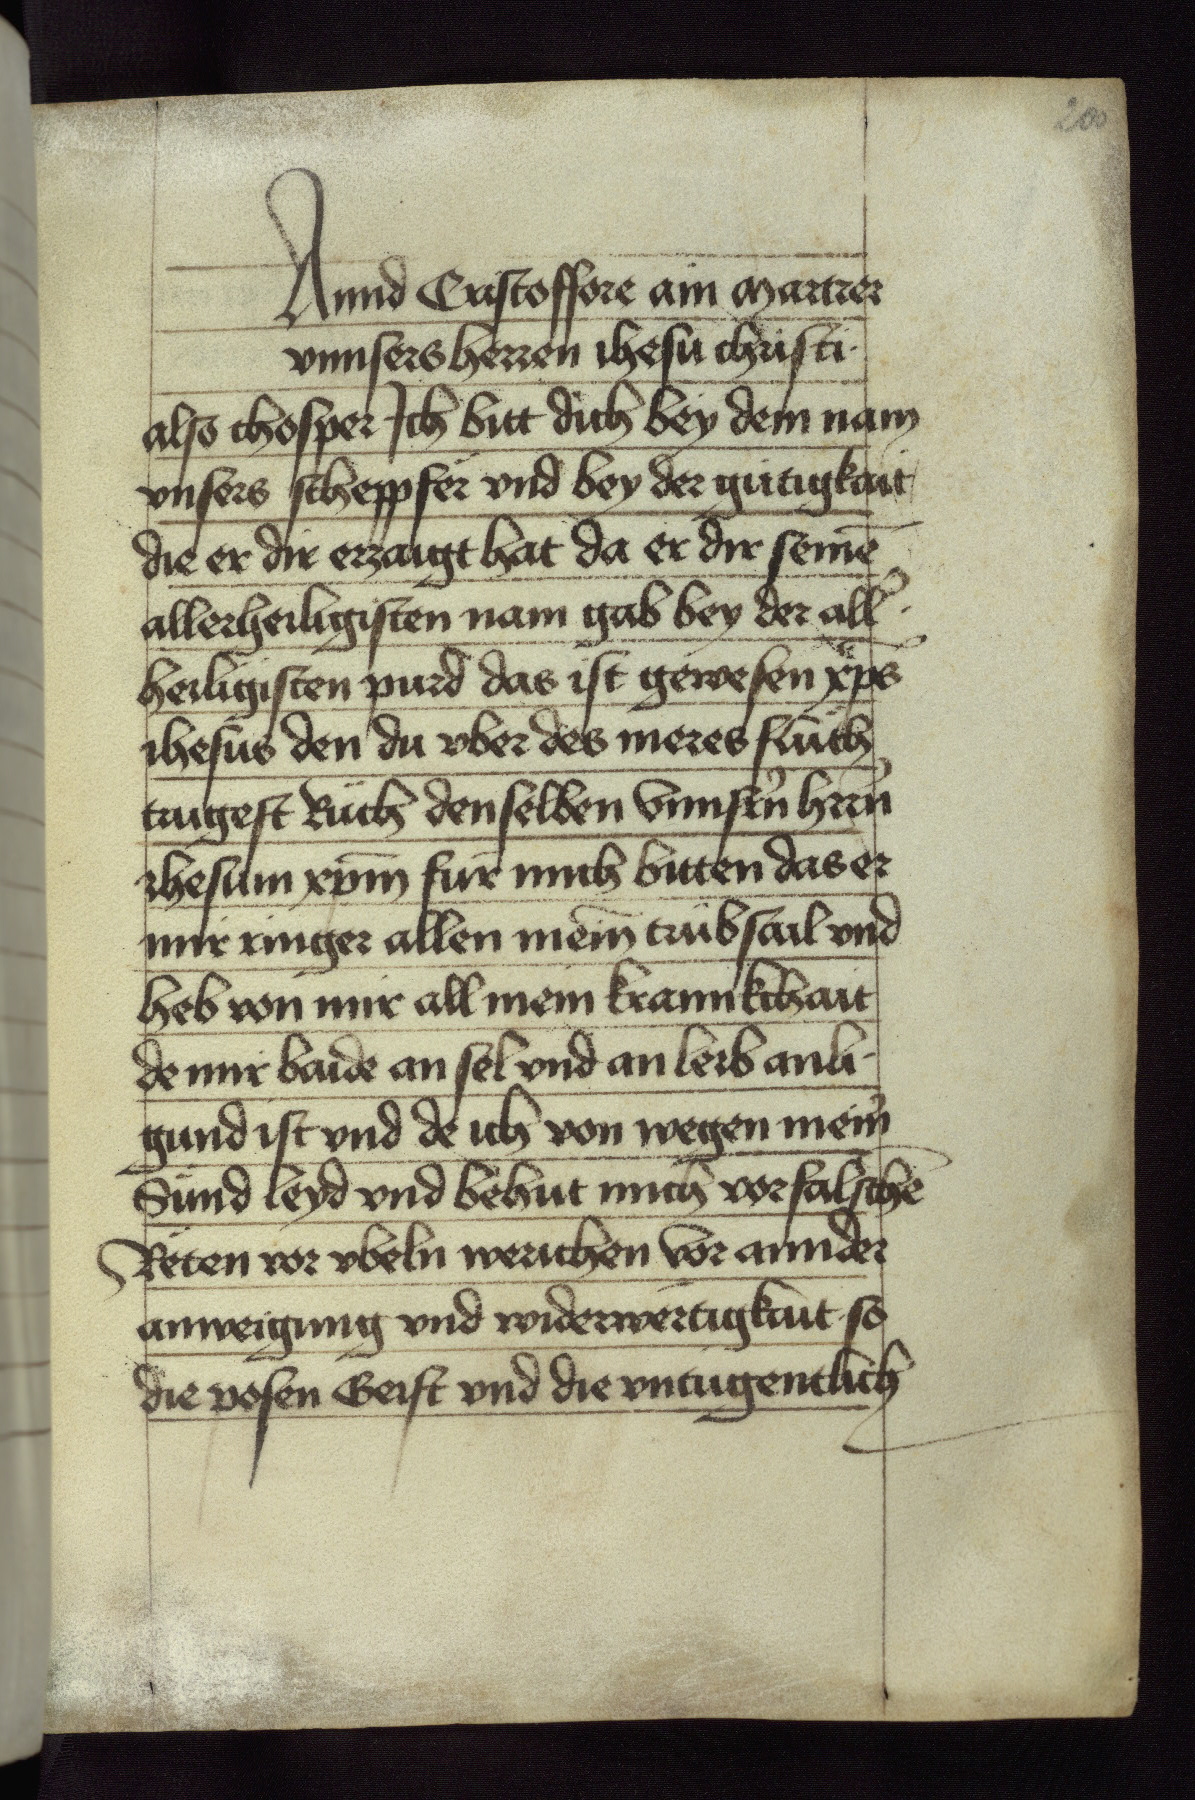 200
Annd Cristoffore ain Martrer
vnnsers herren ihesu christi·
also chosper Ich bitt dich bey dem nam
vnsers scheppfer vnd bey der gütigkait
die er dir erzaigt hat da er dir seinē
allerheiligisten nam gab bey der all̉·
heiligisten purd das ist gewesen xp̄s
ihesus den du vber des meres flüch
trugest Rüch denselben Vnnsrn̉ hrrn̉
ihesum xp̄m für mich bitten das er
mir ringer allen mein̄ trübsail vnd
heb von mir all mein krannkchait
de mir baide an sel vnd an leib anli·
gund ist vnd de ich von wegen mein̉
Sünd leyd vnd behut mich vor falschē
Reten vor vbeln werichen Vor annder
anweigung vnd widerwertigkait so
die posen Geist vnd die vntugentlich